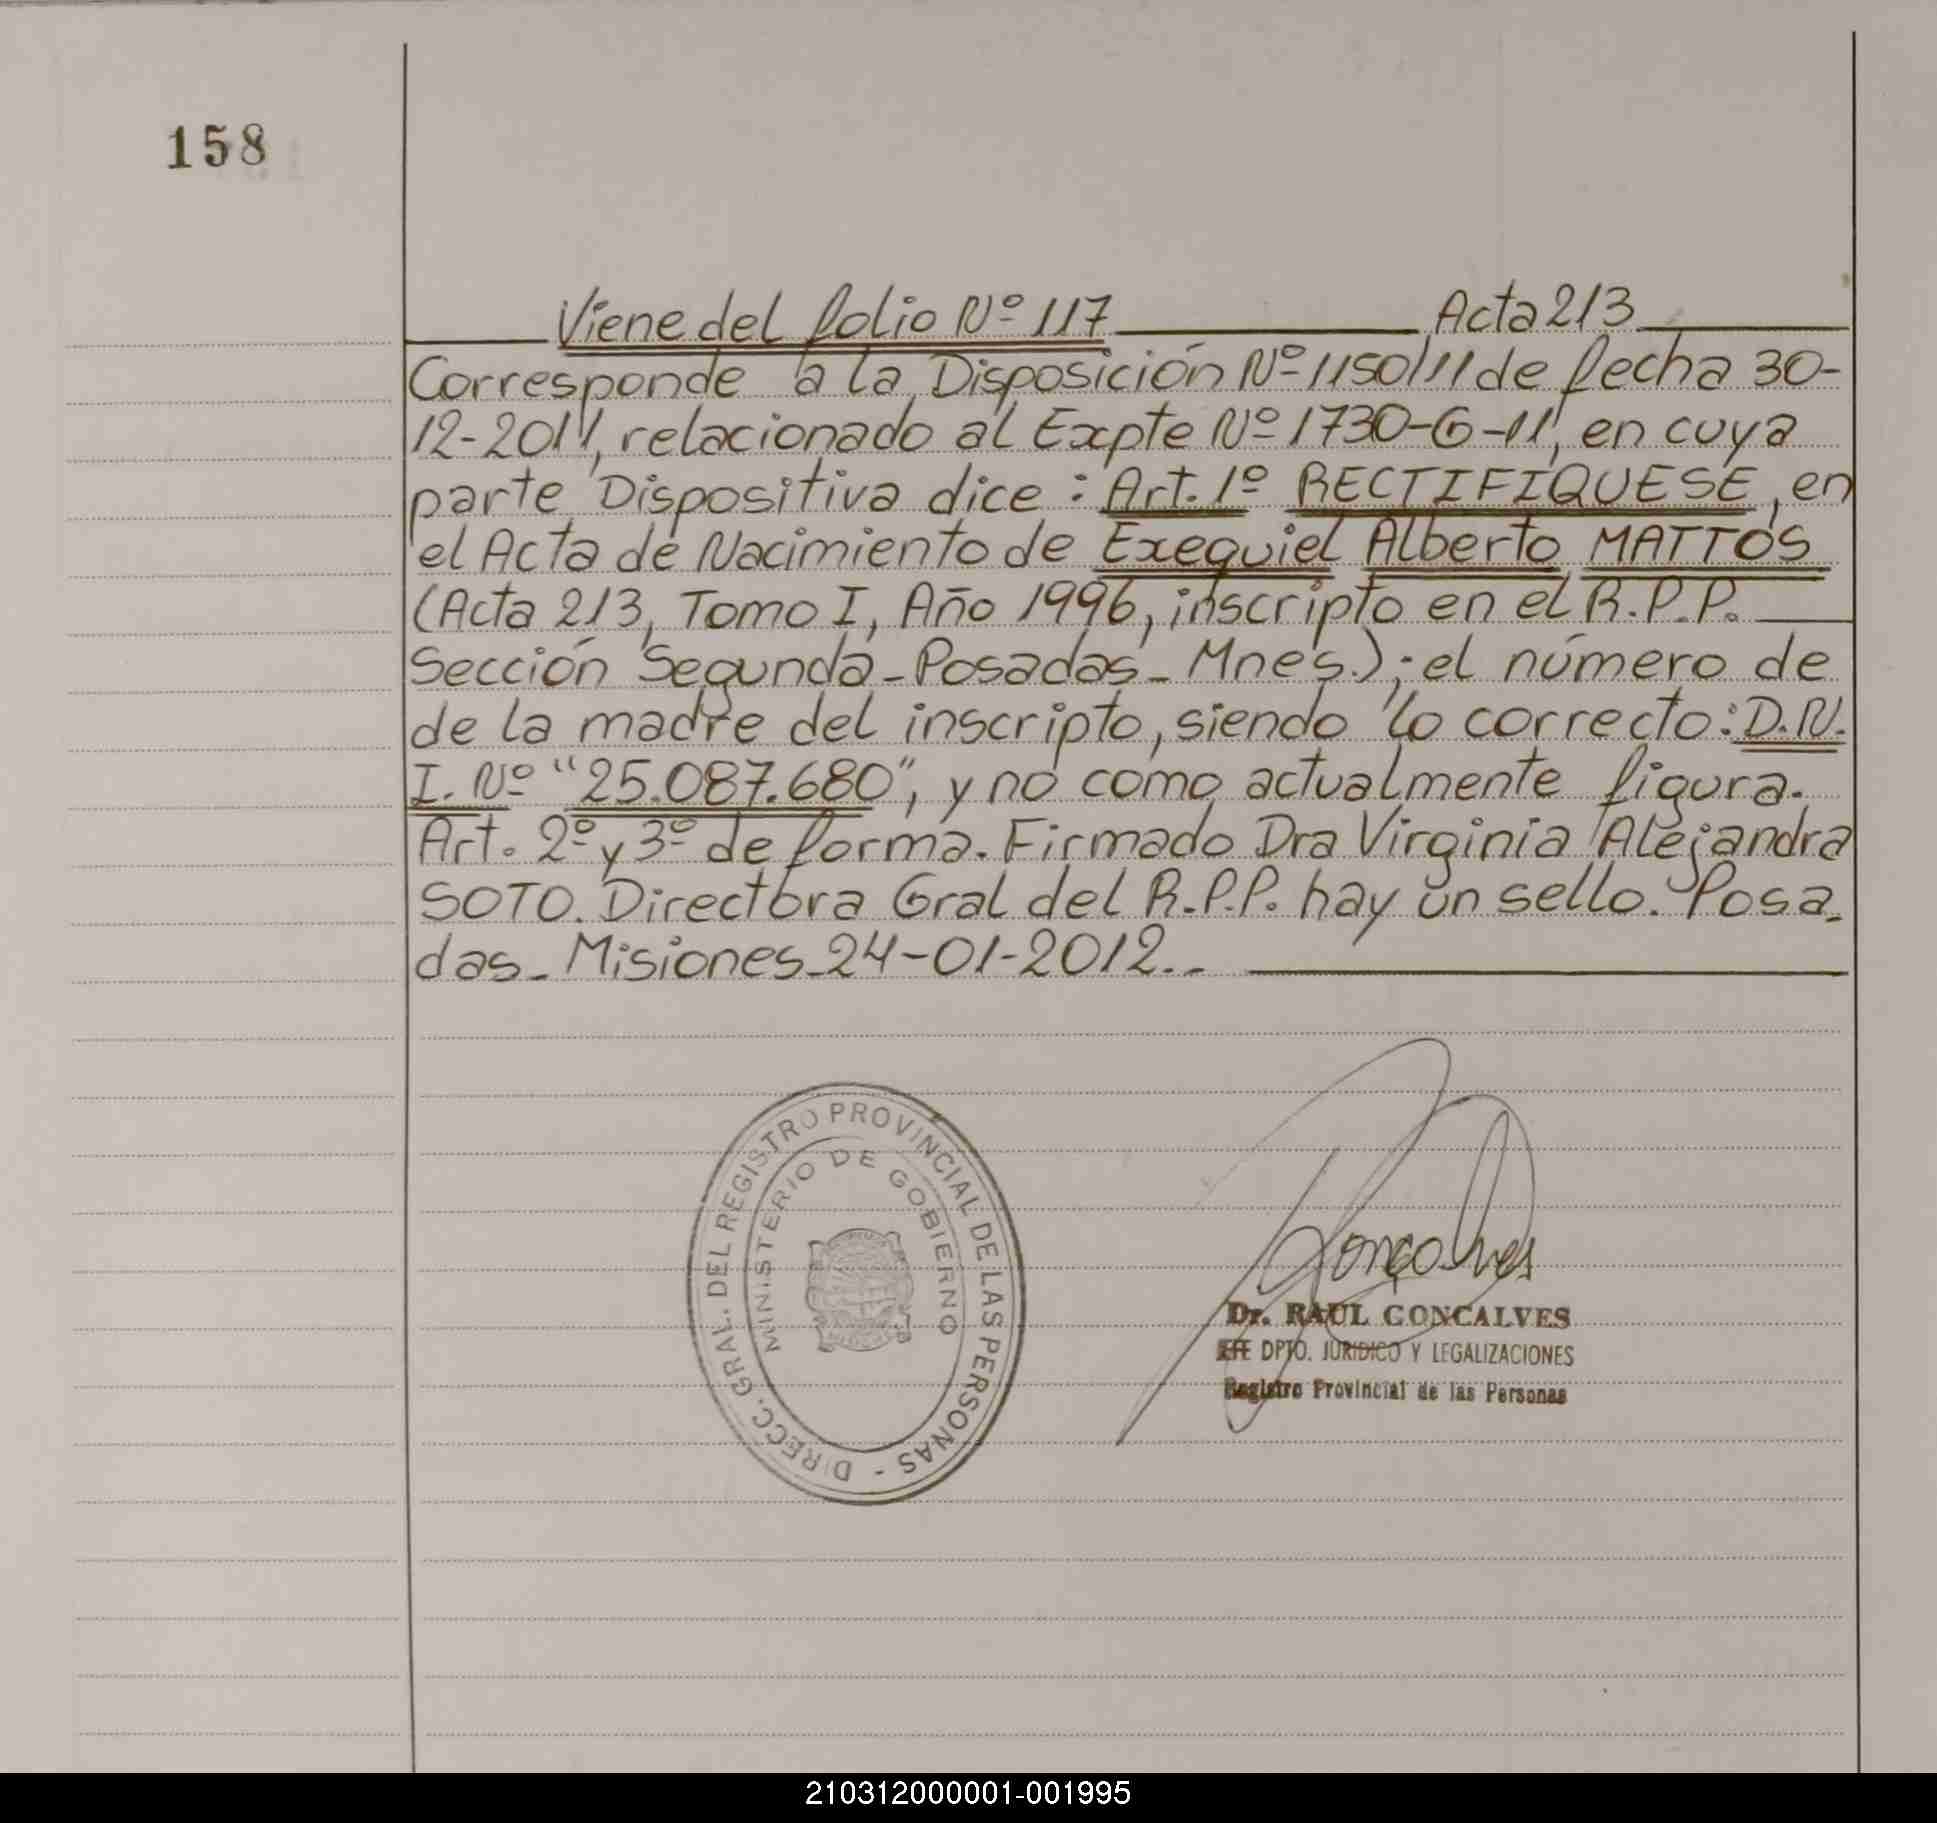 158
Viene del folio Nº 117 Acta 213
Corresponde a la Disposición Nº 1150/11 de fecha 30-
12-2011, relacionado al Expte Nº 1730-G-11, en cuya
parte Dispositiva dice: Art. 1º RECTIFIQUESE, en
el Acta de Nacimiento de Exequiel Alberto MATTOS
(Acta 213, Tomo I, Año 1996, inscripto en el R.P.P.
Sección Segunda-Posadas-Mnes.); el número de
de la madre del inscripto, siendo lo correcto: D.N.
I. Nº "25.087.680", y no como actualmente figura.
Art. 2º y 3º de forma. Firmado Dra Virginia Alejandra
SOTO. Directora Gral del R.P.P. hay un sello. Posa-
das-Misiones-24-01-2012.-
DIRECC. GRAL. DEL REGISTRO PROVINCIAL DE LAS PERSONAS -
MINISTERIO DE GOBIERNO
Goncalves
Dr. RAUL GONCALVES
DPTO. JURIDICO Y LEGALIZACIONES
Registro Provincial de las Personas
210312000001-001995